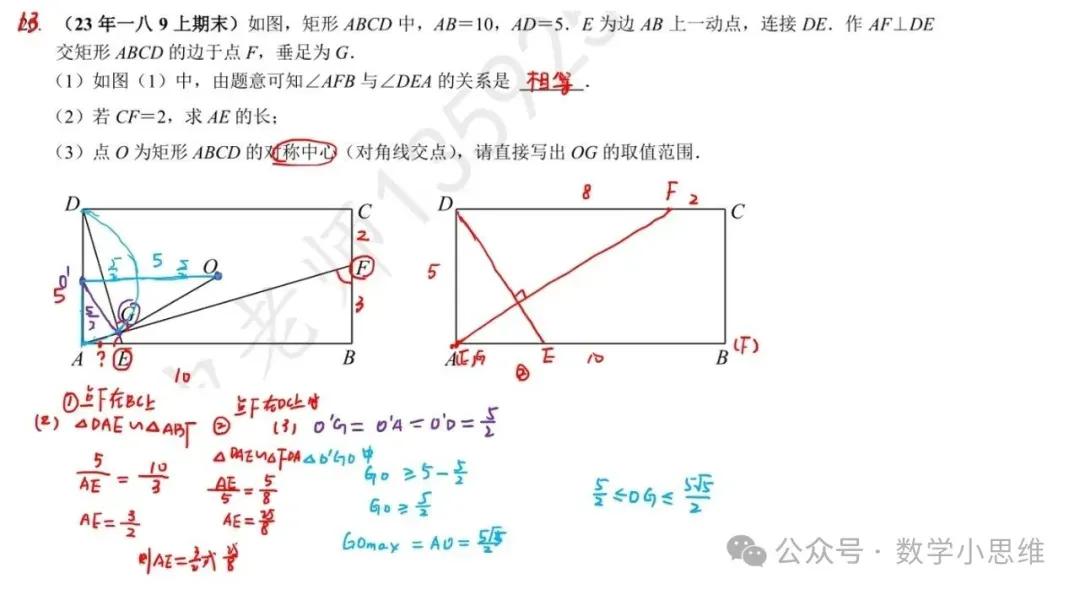 13.（23 年一八 9 上期末）如图，矩形 ABCD 中，AB＝10，AD＝5．E 为边 AB 上一动点，连接 DE．作 AF⊥DE
交矩形 ABCD 的边于点 F，垂足为 G．
（1）如图（1）中，由题意可知∠AFB 与∠DEA 的关系是 相等 ．
（2）若 CF＝2，求 AE 的长；
（3）点 O 为矩形 ABCD 的对称中心（对角线交点），请直接写出 OG 的取值范围．
老师13592
D
C
5/2 5 5/2
O
2
O'
F
5
5/2
G
3
A
?
E
B
10
8
F 2
D
C
5
A
E
10
B (F)
②
①点F在BC上
(2) △DAE∽△ABF
5/AE = 10/3
AE = 3/2
② 点F在DC上时
△DAE∽△FDA
AE/5 = 5/8
AE = 25/8
则AE = 3/2 或 25/8
(3) O'G = O'A = O'D = 5/2
△O'GO 中
GO ≥ 5 - 5/2
GO ≥ 5/2
GOmax = AO = 5√5/2
5/2 ≤ OG ≤ 5√5/2
公众号 · 数学小思维